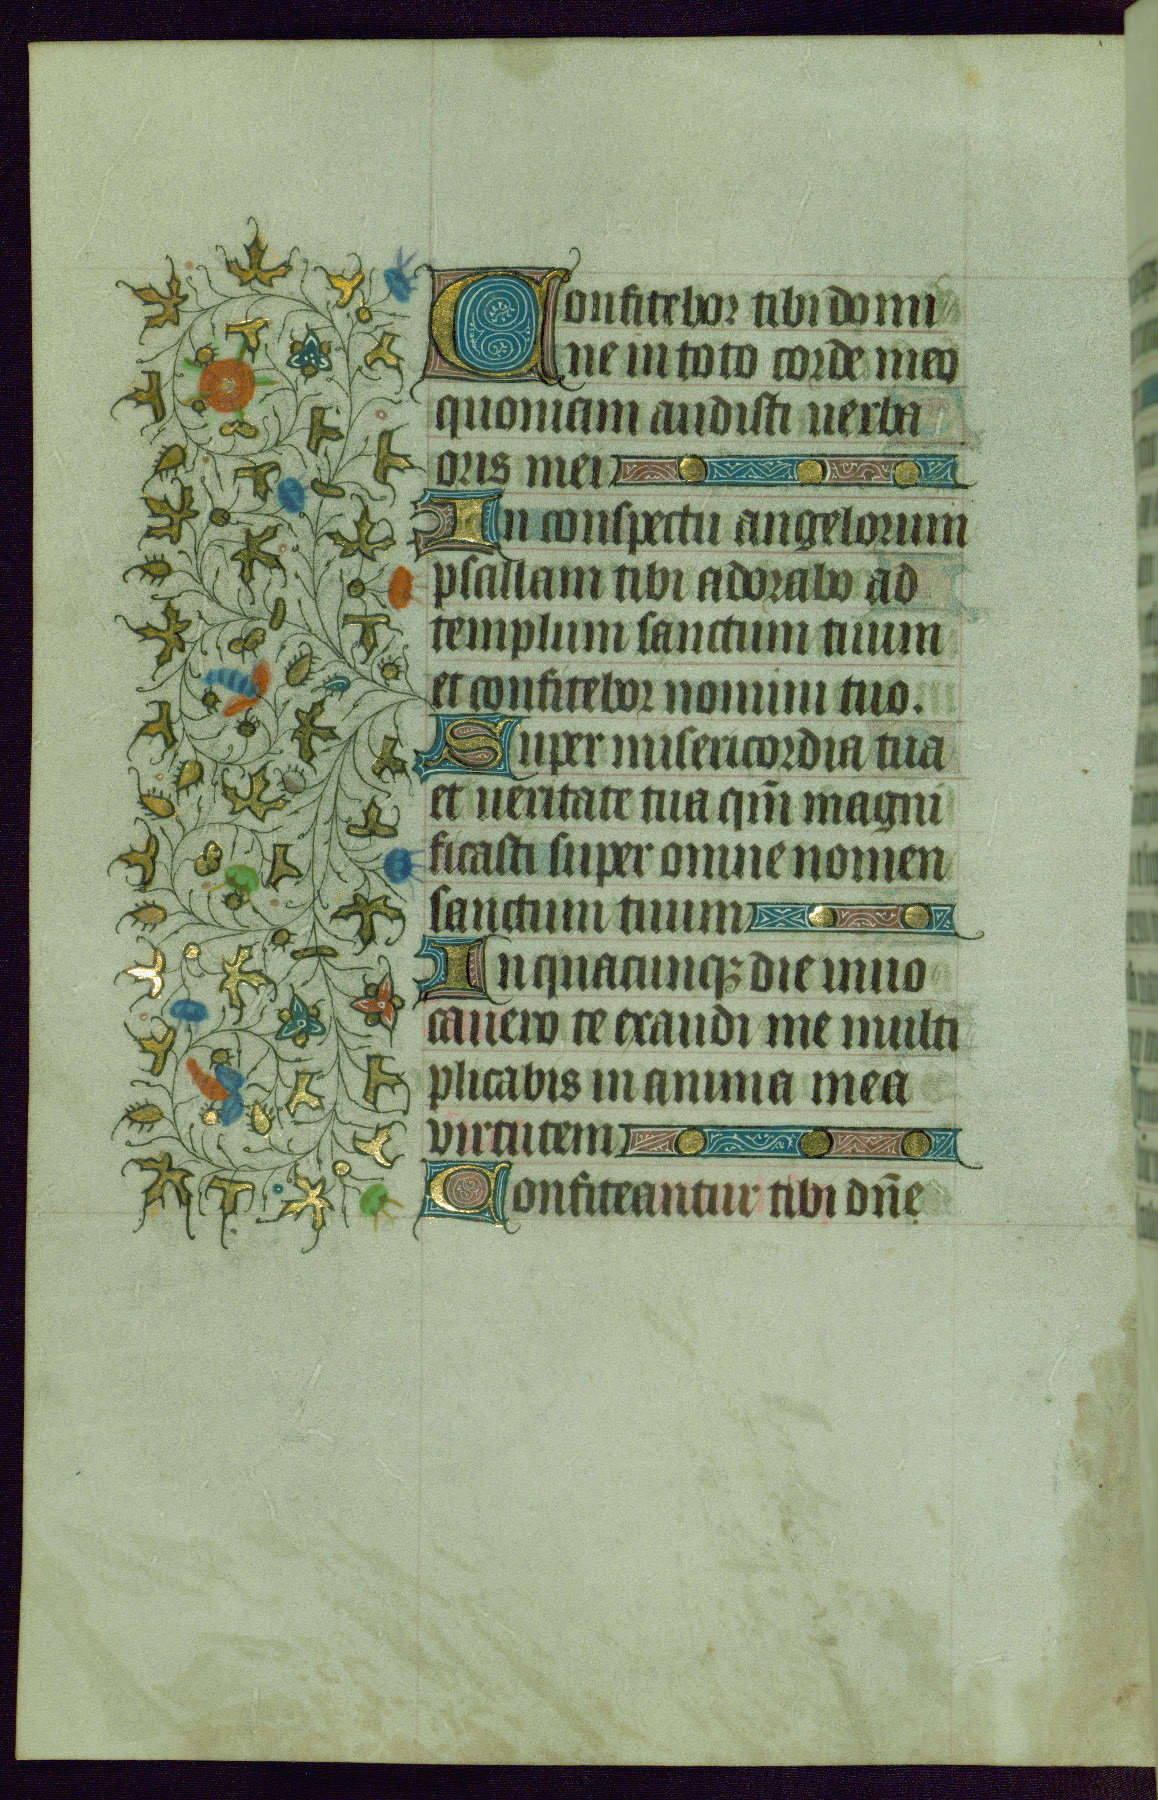 Confitebor tibi domi
ne in toto corde meo
quoniam audisti uerba
oris mei
In conspectu angelorum
psallam tibi adorabo ad
templum sanctum tuum
et confitebor nomini tuo.
Super misericordia tua
et ueritate tua qm̄ magni
ficasti super omne nomen
sanctum tuum
In quacunqꝫ die inuo
cauero te exaudi me multi
plicabis in anima mea
virtutem
Confiteantur tibi dn̄e